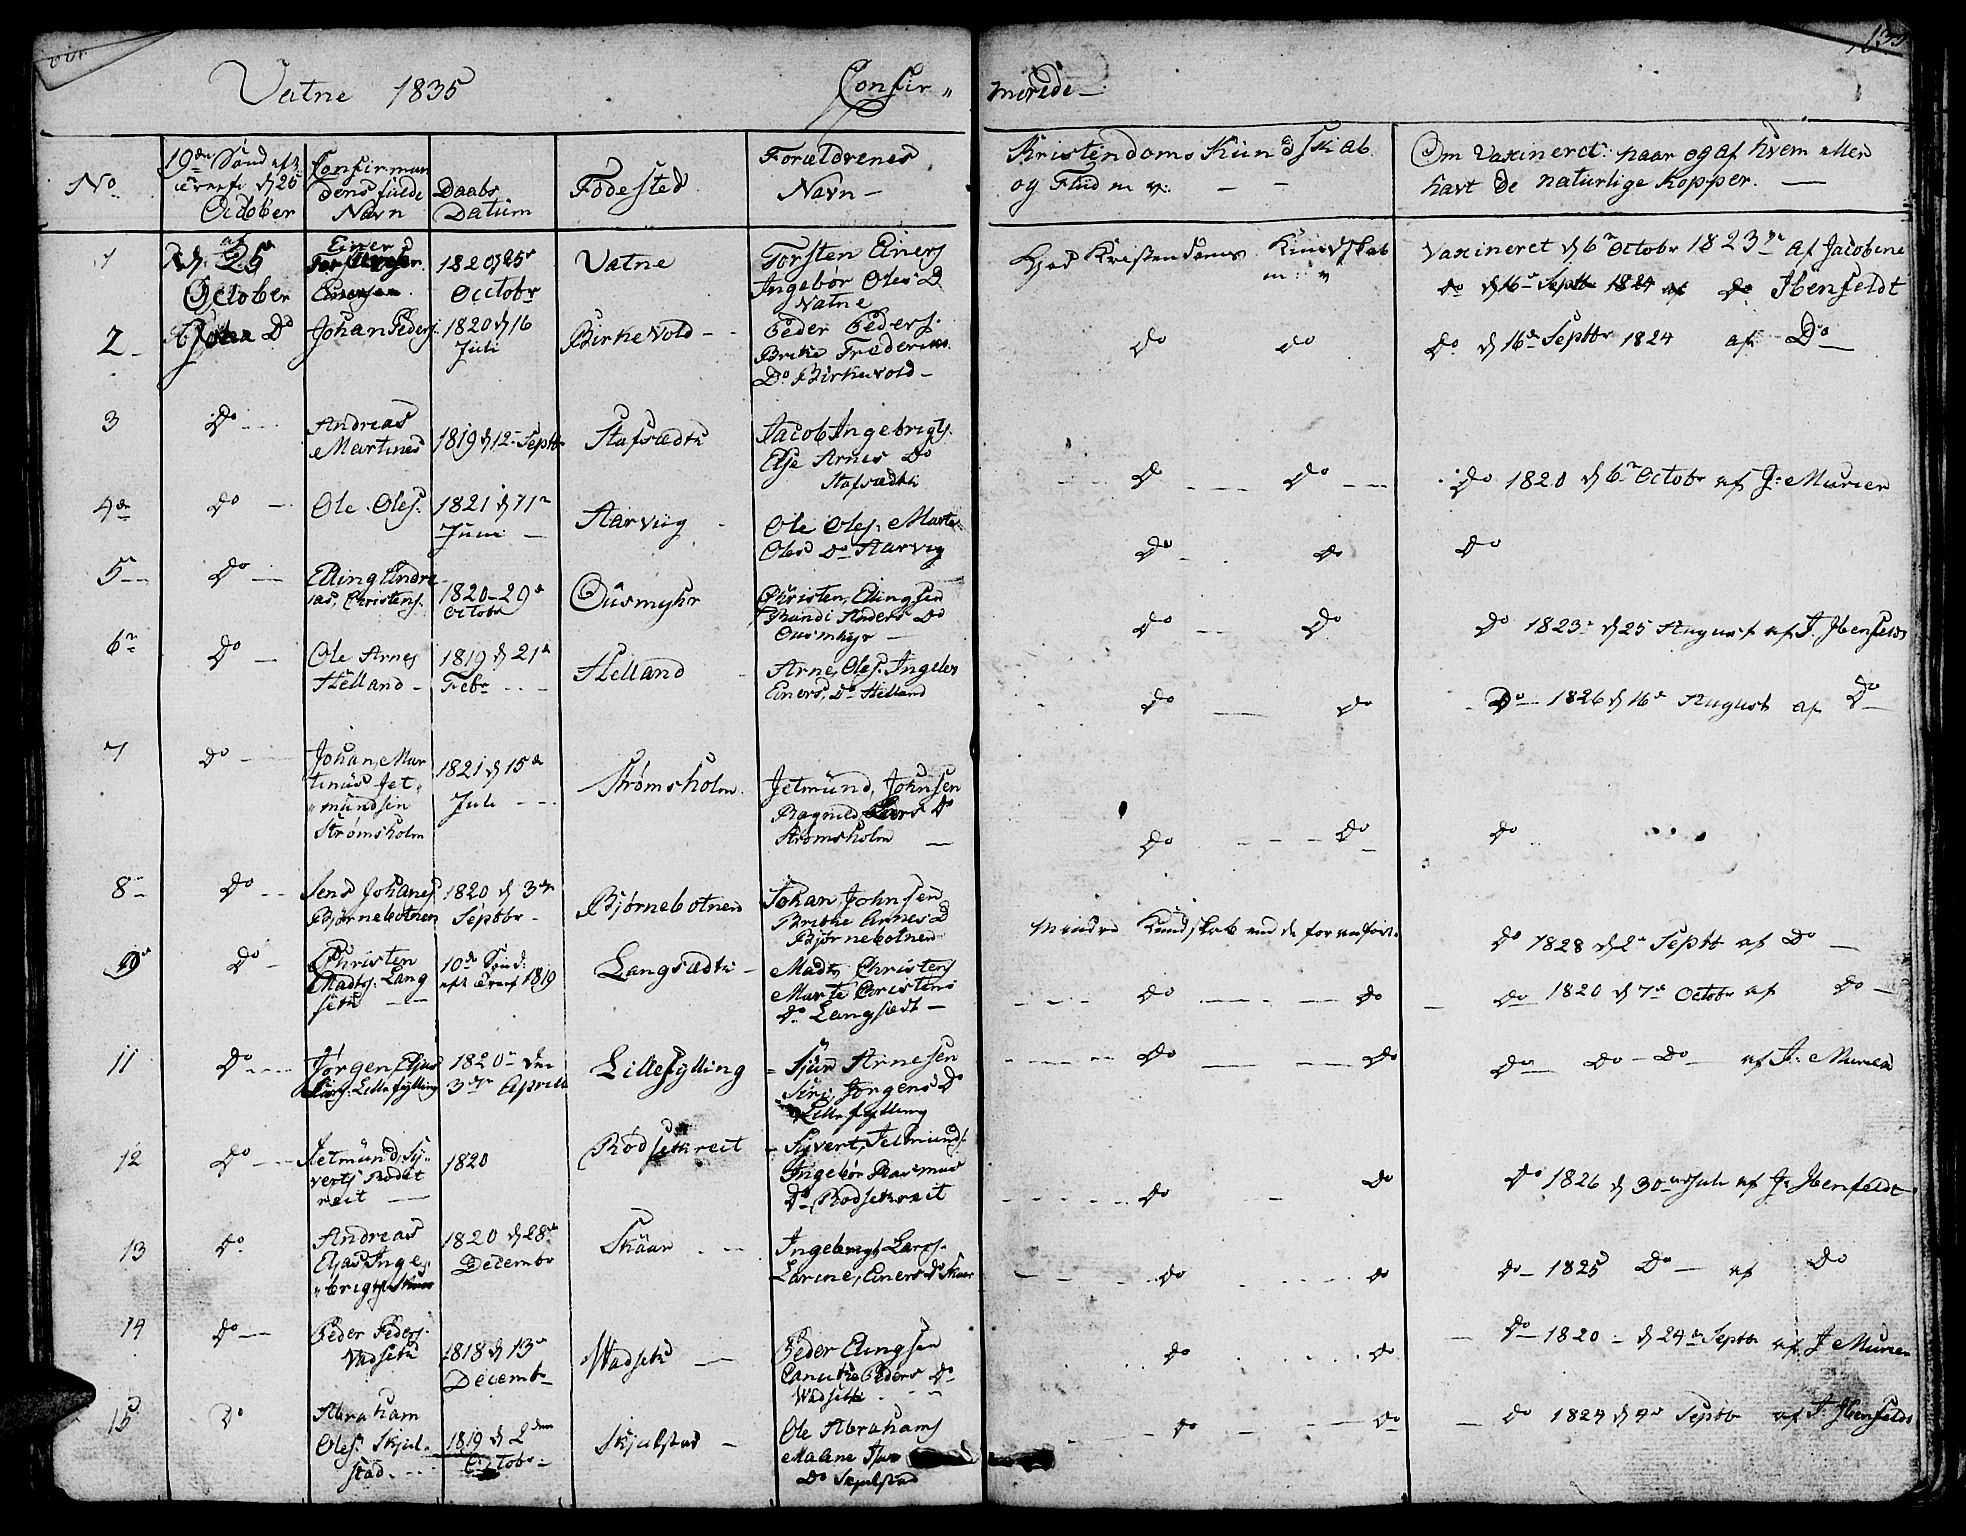 Vatne 1835 Confir„ merede
No
19de Sønd eft
d 25
October
Confirman
dens fulde
Navn
Daabs
Datum
Fødested
Forældrenes
Navn
Kristendoms Kundskab
og Flid m v:
Om Vaxineret: naar og af hvem eller
havt de naturlige Kopper.
1
25
October
Einer
1820 d 25
Octobr
Vatne
Torsten Einers
Ingebør Oles D
Vatne
God Kristendoms Kundskab
m: v
Vaxineret d 6te Octobr 1823 af Jacobine
Do d 16 Septbr 1824 af Do Ibenfeldt
2
Do
Johan Peders.
1820 d 16
Juli
Birkevold
Peder Peders.
Do Birkevold
Do Do
Do d 16de Septbr 1824 af Do
3
Do
Andreas
Martines
1819 d 12 Septbr
Stafsædth
Jacob Ingebrigts.
Else Arnes Do
Stafsædth
Do Do
Do 1820 d 6te Octobr af J: Murier
4de
Do
Ole Oles.
1821 d 11te
Juni
Aarviig
Ole Oles. Marte
Olesd Do Aarvig
Do Do
Do
5
Do
Elling Andre
ias, Christens.
1820 29de
Octobr
Ousmyhr
Christen, Ellingsen
Randi Anders Do
Ousmhyr
Do Do
Do 1823 d 25 August af J. Ibenfeldt
6te
Do
Ole Arnes
Helland
1819 d 21de
Febr
Helland
Arne, Oles. Ingeber
Einers, Do Helland
Do Do
Do 1826 d 16de August af Do
7
Do
Johan, Mar
tinus Jet„
„mundsen
Strømsholm
1821 d 15de
Juli
Strømsholm
Jetmund, Johnsen
Ragnild, Lars Do
Strømsholm
Do Do
Do
8
Do
Jens Johanes
Bjørnebotnen
1820 d 3die
Septbr
Bjørnebotnen
Johan, Johnsen
Britke Arnes D
Bjørnebotnen
Mindre Kundskab end de foranførte
Do 1828 d 2de Septb af Do
Do
Christen
Madts. Lang
seth
10de Sønd:
1819
Langsædth
Madts Christens
Marte Christens
Do Langsædt
Do Do
Do 1820 d 7de Octobr af Do
11
Do
Jørgen Elias
Lillefylling
1820 den
3die Aprill
Lillefylling
Sjur Arnesen
Siri, Jørgens Do
Lillefylling
Do Do
Do Do Do af J: Murier
12
Do
Jetmund, Sy„
verts Rødset
reit
1820
Rødsethreit
Syvert, Jetmunds.
Ingebør Rasmus
Do Rødsethreit
Do Do
Do 1826 d 30 Juli af J: Ibenfeldt
13
Do
Andreas
Elias Inge„
„brigts Skaar
1820 d 28de
Decembr
Skaar
Ingebrigt, Lars.
Larine, Einers Do Skaar
Do Do
Do 1825 Do af Do
14
Do
Peder Peders.
Vadseth
1818 d 13de
Decembr
Wadseth
Peder Elingsen
Peders Do
Wadseth
Do Do
Do 1820 d 24de Septbr af J Murier
15
Do
Abraham
Oles. Skjel„
stad
1819 d 2den
Octobr
Skjelstad
Ole Abrahams
Malene
Do Skjelstad
Do Do
Do 1824 d 4de Septbr af J. Ibenfeldt